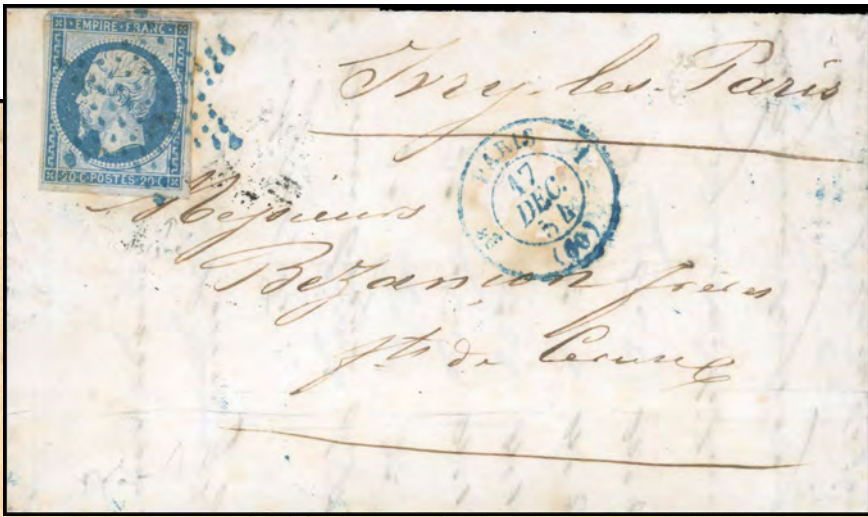 EMPIRE·FRANC·
20·C·POSTES·20·C·
Ivry-les-Paris
PARIS
17
DEC.
54
(60)
Messieurs
Bezançon frères
fts de Ceruse